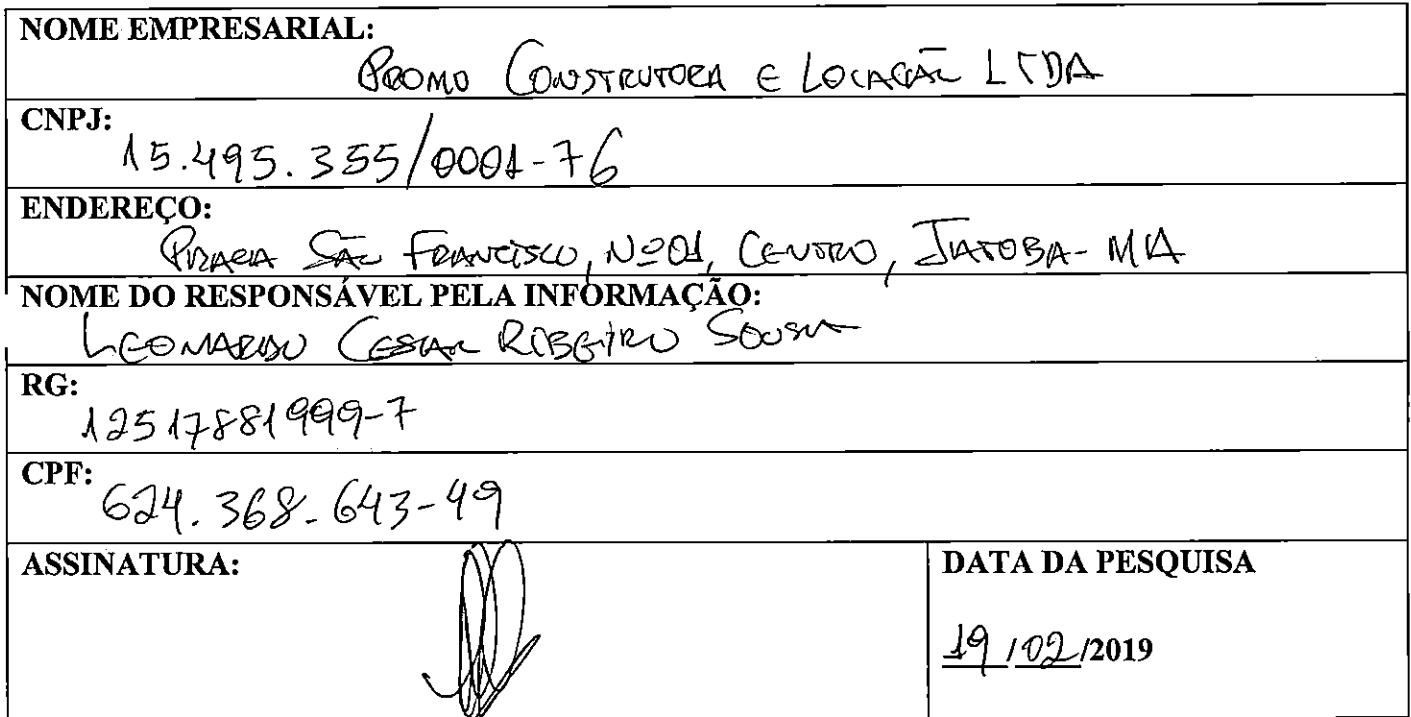 NOME EMPRESARIAL:
PROMO CONSTRUTORA E LOCAÇÃO LTDA
CNPJ:
15.495.355/0001-76
ENDEREÇO:
PRAÇA SÃO FRANCISCO, Nº01, CENTRO, JATOBA-MA
NOME DO RESPONSÁVEL PELA INFORMAÇÃO:
LEONARDO CESAR RIBEIRO SOUSA
RG:
12517881999-7
CPF:
624.368.643-49
ASSINATURA:
DATA DA PESQUISA
19/02/2019